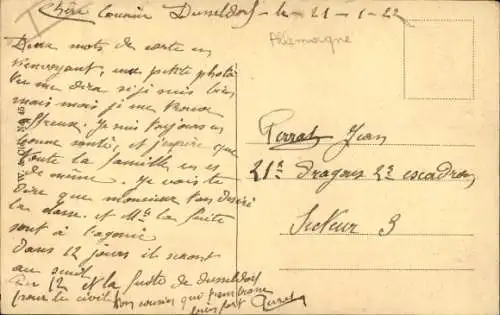 Cher Cousin Dusseldorf le 21-1-22
Allemagne
Deux mots de carte en
t'envoyant, une petite photo
tu me dira si je suis bien
mais moi je me trouve
affreux. Je suis toujours en
bonne santé, et j'espère que
toute la famille en es
de même. Je vais te
dire que monsieur ton désiré
la classe. et Mr la fuite
sont à l'agonie
dans 12 jours il seront
au seuil
Du 12 et la fuite de dusseldorf
pour le civil
ton cousin qui t'embrasse
bien fort Perrat
Perrat Jean
21e Dragons 2e escadron
Secteur 3